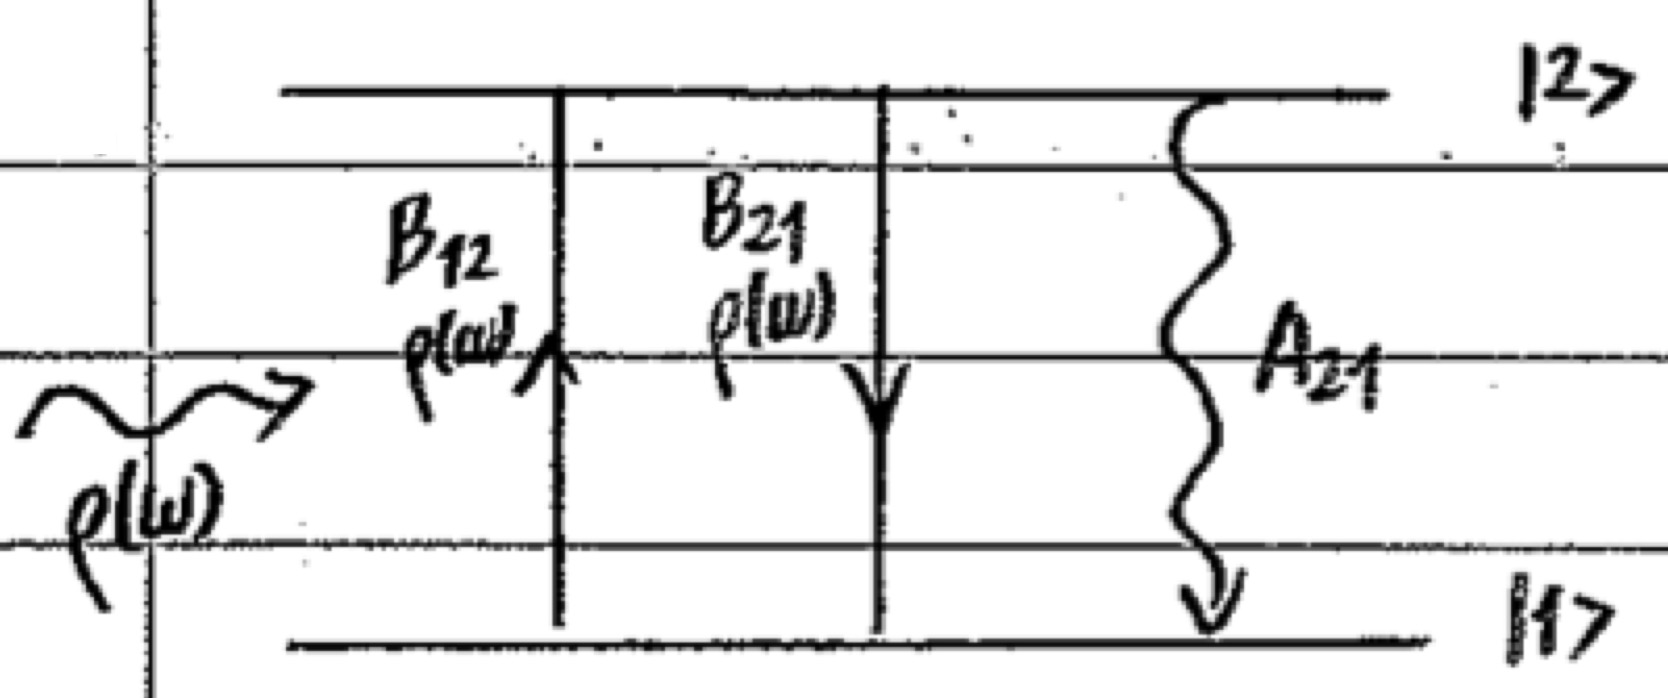 |2>
B₁₂
ρ(ω)
B₂₁
ρ(ω)
A₂₁
ρ(ω)
|1>